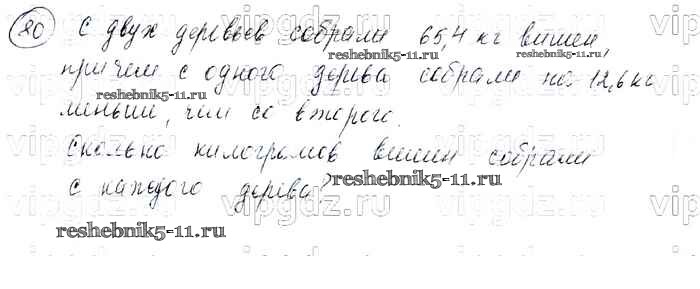 20 С двух деревьев собрали 65,4 кг вишен,
причем с одного дерева собрали на 12,6 кг
меньше, чем со второго.
Сколько килограмов вишен собрали
с каждого дерева?
vipgdz.ru
reshebnik5-11.ru
reshebnik5-11.ru
reshebnik5-11.ru
reshebnik5-11.ru
reshebnik5-11.ru